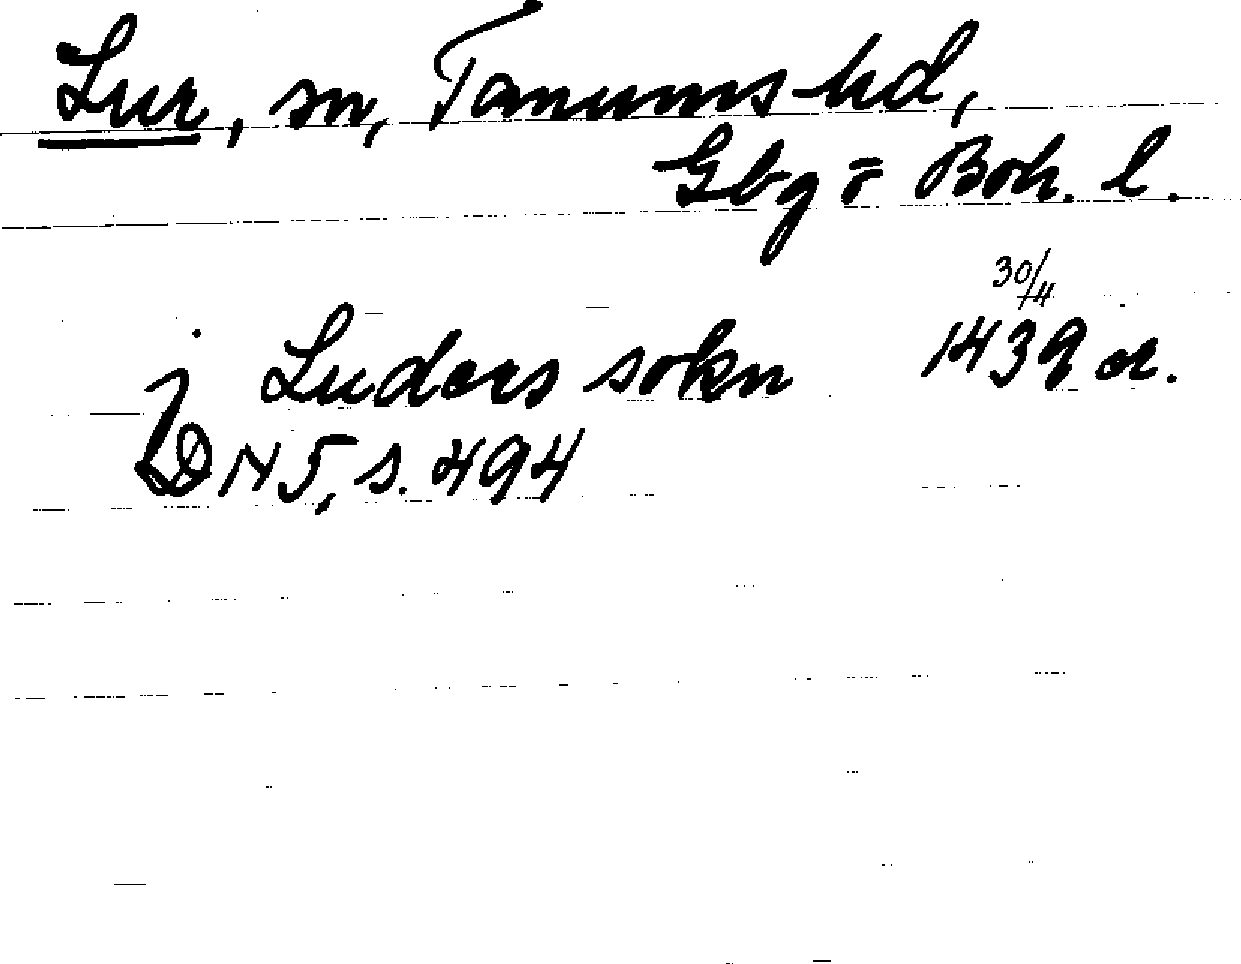 Lur, sn, Tanums hd,
Gbg o Boh. l.
30/4
j Luders sokn 1439 or.
DN 5, s. 494